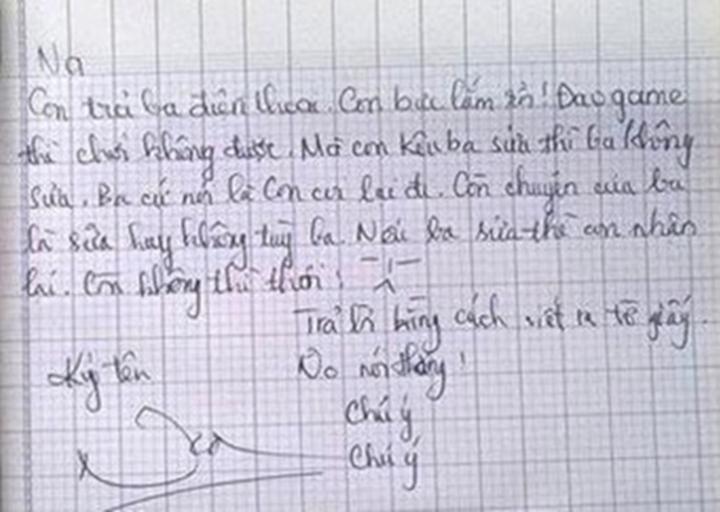 Na
Con trả ba điện thoại. Con bực lắm rồi! Đao game
thì chơi không được. Mà con kêu ba sửa thì ba không
sửa. Ba cứ nói là con cứ lại đi. Còn chuyện của ba
là sửa hay không tuỳ ba. Nếu ba sửa thì con nhận
lại. Còn không thì thôi!
Trả lời bằng cách viết ra tờ giấy.
No nói thẳng!
Ký tên
Chú ý
Chú ý